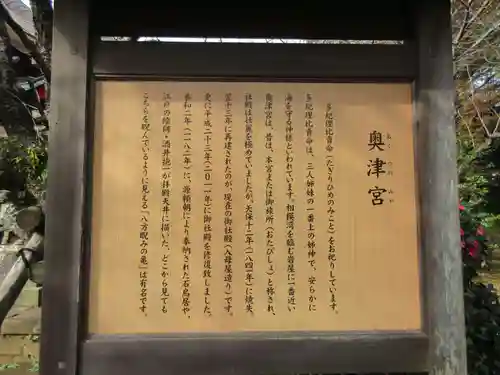 奥津宮
おくつのみや
多紀理比賣命(たぎりひめのみこと)をお祀りしています。
多紀理比賣命は、三人姉妹の一番上の姉神で、安らかに
海を守る神様といわれています。相模湾を臨む岩屋に一番近い
奥津宮は、昔は、本宮または御旅所(おたびしょ)と称され、
社殿は壮麗を極めていましたが、天保十二年(一八四一年)に焼失、
翌十三年に再建されたのが、現在の御社殿(入母屋造り)です。
更に平成二十三年(二〇一一年)に御社殿を修復致しました。
令和二年(一一八二年)に、源頼朝により奉納された石鳥居や、
江戸の絵師・酒井抱一が拝殿天井に描いた、どこから見ても
こちらを睨んでいるように見える『八方睨みの亀』は有名です。